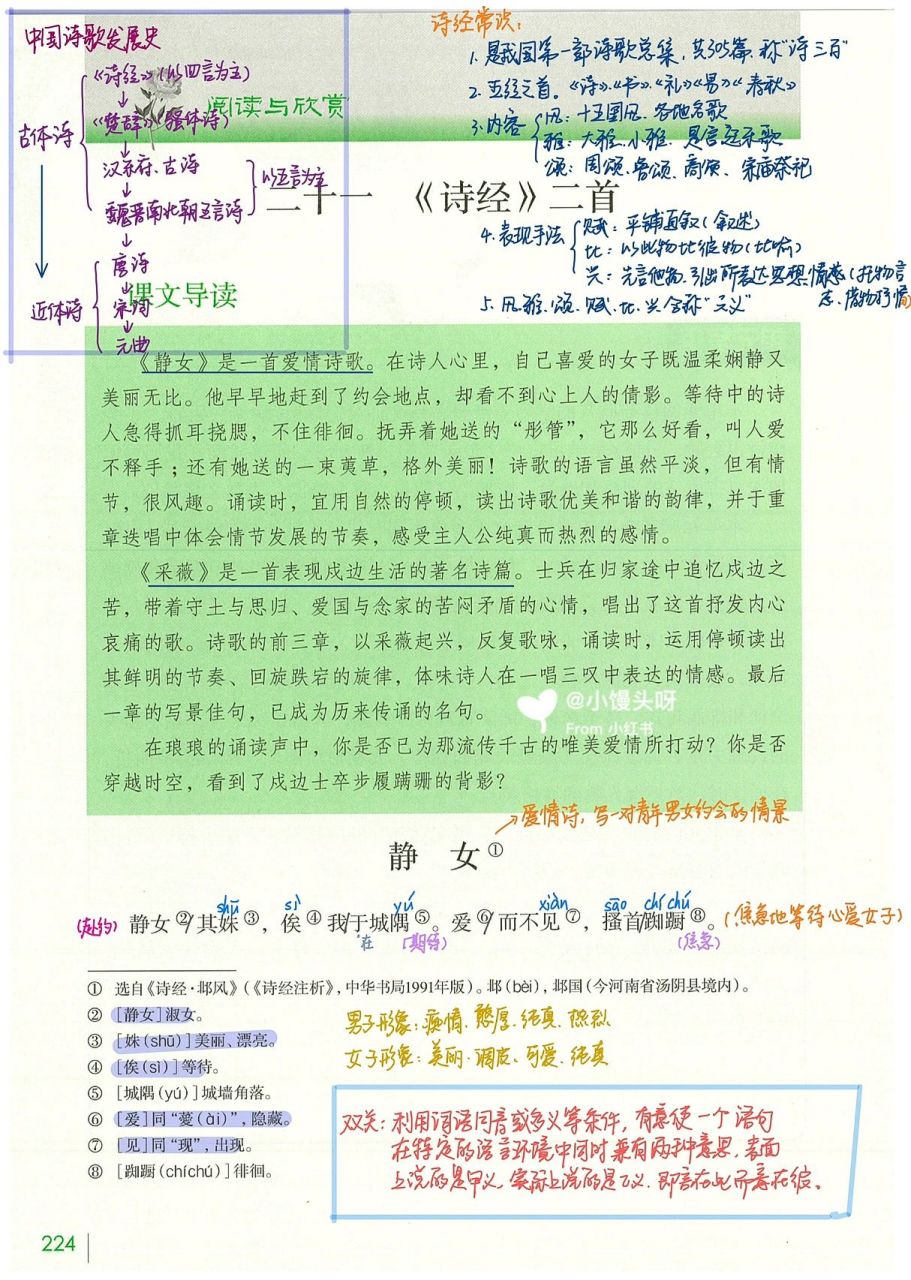 中国诗歌发展史
《诗经》(以四言为主)
↓
《楚辞》(骚体诗)
古体诗
↓
汉乐府、古诗
↓
魏晋南北朝五言诗
以五言为主
↓
近体诗
唐诗
↓
宋词
↓
元曲
诗经常识:
1. 是我国第一部诗歌总集, 共305篇, 称“诗三百”
2. 五经之首。《诗》、《书》、《礼》《易》《春秋》
3. 内容
风: 十五国风、各地名歌
雅: 大雅、小雅、是宫廷乐歌
颂: 周颂、鲁颂、商颂、宗庙祭祀
4. 表现手法
赋: 平铺直叙(叙述)
比: 以此物比彼物(比喻)
兴: 先言他物, 引出所表达思想情感(托物言
志、借物抒情)
5. 风、雅、颂、赋、比、兴合称“六义”
阅读与欣赏
二十一 《诗经》二首
课文导读
《静女》是一首爱情诗歌。在诗人心里，自己喜爱的女子既温柔娴静又
美丽无比。他早早地赶到了约会地点，却看不到心上人的倩影。等待中的诗
人急得抓耳挠腮，不住徘徊。抚弄着她送的“彤管”，它那么好看，叫人爱
不释手；还有她送的一束荑草，格外美丽！诗歌的语言虽然平淡，但有情
节，很风趣。诵读时，宜用自然的停顿，读出诗歌优美和谐的韵律，并于重
章迭唱中体会情节发展的节奏，感受主人公纯真而热烈的感情。
《采薇》是一首表现戍边生活的著名诗篇。士兵在归家途中追忆戍边之
苦，带着守土与思归、爱国与念家的苦闷矛盾的心情，唱出了这首抒发内心
哀痛的歌。诗歌的前三章，以采薇起兴，反复歌咏，诵读时，运用停顿读出
其鲜明的节奏、回旋跌宕的旋律，体味诗人在一唱三叹中表达的情感。最后
一章的写景佳句，已成为历来传诵的名句。
@小馒头呀
From 小红书
在琅琅的诵读声中，你是否已为那流传千古的唯美爱情所打动？你是否
穿越时空，看到了戍边士卒步履蹒跚的背影？
→爱情诗, 写一对青年男女约会的情景
静 女①
shū sì yú xiàn sāo chí chú
(赴约) 静女②/其姝③，俟④我/于城隅⑤。爱⑥/而不见⑦，搔首/踟蹰⑧。(焦急地等待心爱女子)
在 [期待) (焦急)
① 选自《诗经·邶风》(《诗经注析》，中华书局1991年版)。邶(bèi)，邶国(今河南省汤阴县境内)。
② [静女]淑女。
③ [姝(shū)]美丽、漂亮。
④ [俟(sì)]等待。
⑤ [城隅(yú)]城墙角落。
⑥ [爱]同“薆(ài)”，隐藏。
⑦ [见]同“现”，出现。
⑧ [踟蹰(chíchú)]徘徊。
男子形象: 痴情、憨厚、纯真、热烈
女子形象: 美丽、调皮、可爱、纯真
双关: 利用词语同音或多义等条件, 有意使一个语句
在特定的语言环境中同时兼有两种意思, 表面
上说的是甲义, 实际上说的是乙义, 即言在此而意在彼。
224